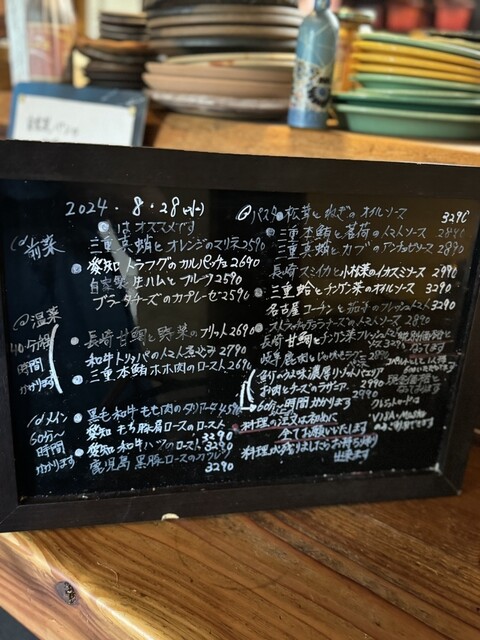 2024・8・28(水)
●はオススメです
前菜
三重真蛸とオレンジのマリネ2590
●愛知トラフグのカルパッチョ2690
自家製生ハムとフルーツ2590
ブラータチーズのカプレーゼ2590
温菜
40分程
時間
かかります
●長崎甘鯛と野菜のフリット2690
和牛トリッパのトマト煮込み2790
●三重本鮪ホホ肉のロースト2690
メイン
60分〜
時間
かかります
●黒毛和牛もも肉のタリアータ
●愛知もち豚肩ロースのロースト
3290
●愛知和牛ハツのロースト3290
鹿児島黒豚ロースのカツレツ
3290
パスタ●松茸とねぎのオイルソース
3290
●三重本鮪と茗荷のトマトソース
三重真蛸とカブのアンチョビソース2890
長崎スミイカと小松菜のイカスミソース2990
●三重蛤とチンゲン菜のオイルソース
3290
名古屋コーチンと茄子のフレッシュトマト3290
●ストラッチャテラチーズのトマトソース2890
●長崎甘鯛と
岐阜鹿肉とじゃがいも
2990
お肉とチーズのラザニア
2990
60分〜時間かかります
クレジットカードは
VISA
●料理の注文は初めに
全てお願いいたします
料理が残りましたらお持ち帰り
出来ます